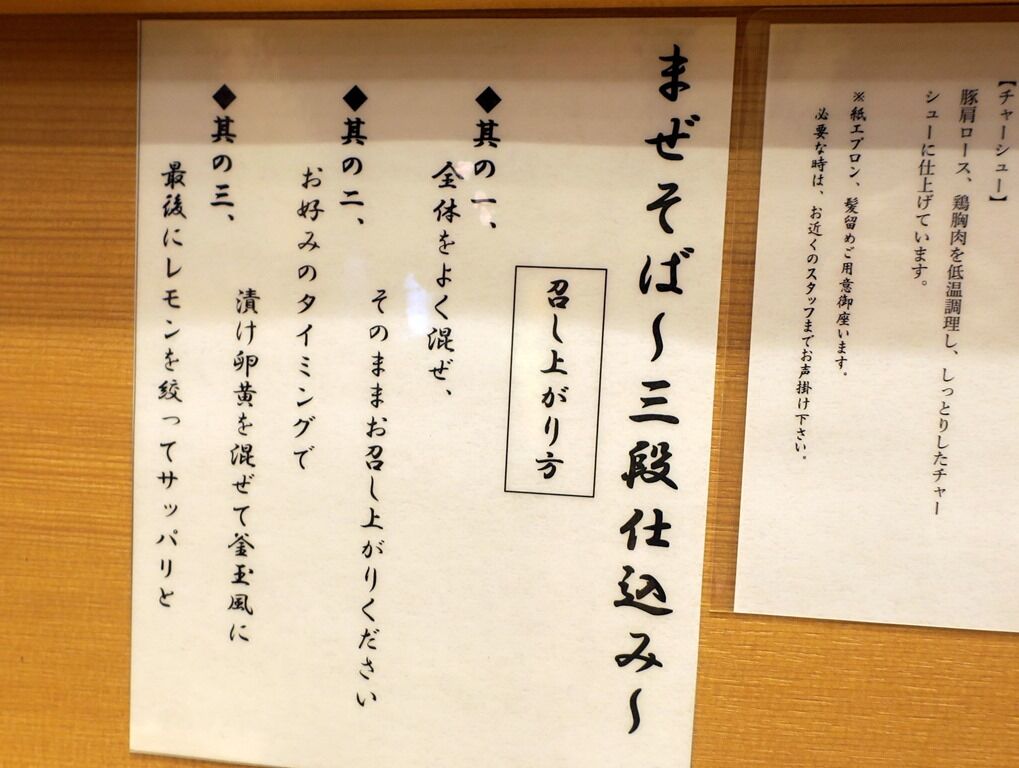 【チャーシュー】
豚肩ロース、鶏胸肉を低温調理し、しっとりしたチャー
シューに仕上げています。
※紙エプロン、髪留めご用意御座います。
必要な時は、お近くのスタッフまでお声掛け下さい。
まぜそば～三段仕込み～
召し上がり方
◆其の一、
全体をよく混ぜ、
そのままお召し上がりください
◆其の二、
お好みのタイミングで
漬け卵黄を混ぜて釜玉風に
◆其の三、
最後にレモンを絞ってサッパリと